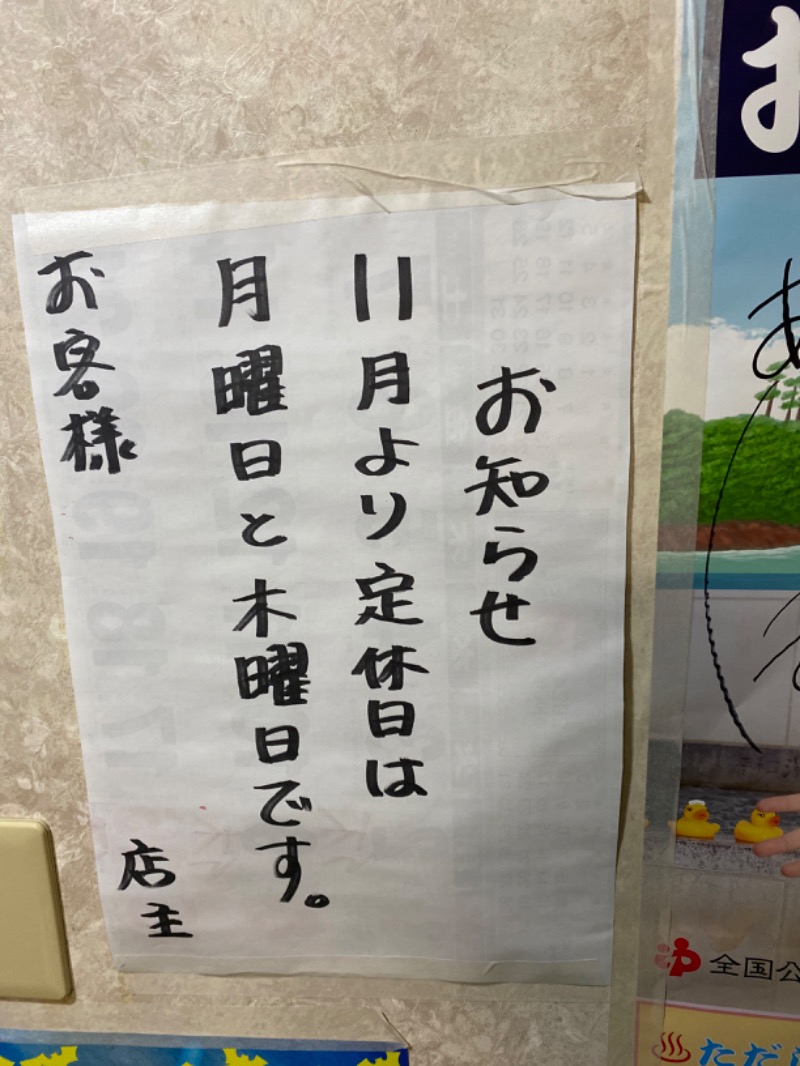 お知らせ
11月より定休日は
月曜日と木曜日です。
店主
お客様
お
全国公
ただ